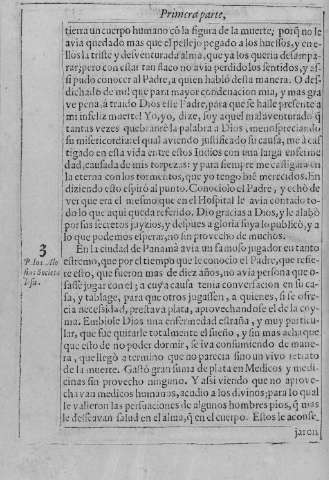 Primera parte,
tierra un cuerpo humano cō la figura de la muerte; porq̃ no le
avia quedado mas que el pellejo pegado a los huessos, y en e-
llos la triste y desventurada alma, que ya los queria desampa-
rar; pero con estar tan flaco no avia perdido los sentidos, y as-
si pudo conocer al Padre, a quien habló desta manera. O des-
dichado de mi! que para mayor condenacion mia, y mas gra
ve pena, à traido Dios esse Padre, para que se halle presente a
mi infeliz muerte! Yo, yo, dize, soy aquel malaventurado q̃
tantas vezes quebrantè la palabra a Dios, menospreciando
su misericordia: el qual aviendo justificado su causa, me à cas
tigado en esta vida entre estos Indios con una larga enferme
dad, causada de mis torpezas: y para siempre me castigara en
la eterna con los tormentos, que yo tengo biē merecidos. En
diziendo esto espirò al punto. Conociolo el Padre, y echò de
ver que era el mesmo que en el Hospital le avia contado to-
do lo que aqui queda referido. Dio gracias a Dios, y le alabò
por sus secretos juyzios, y despues a gloria suya lo publicò, y a
lo que podemos esperar, no sin provecho de muchos.
3
En la ciudad de Panamà avia un famoso jugador en tanto
estremo, que por el tiempo que le conocio el Padre, que refie-
re esto, que fueron mas de diez años, no avia persona que o-
sasse jugar con el; a cuya causa tenia conversacion en su ca-
sa, y tablage, para que otros jugassen, a quienes, si se ofre-
cia necessidad, prestava plata, aprovechandose el de la coy-
ma. Embiole Dios una enfermedad estraña, y muy particu-
lar, que fue quitarle totalmente el sueño, y sin mas achaque
que esto de no poder dormir, se iva consumiendo de mane-
ra, que llegò a termino que no parecia sino un vivo retrato
de la muerte. Gastò gran suma de plata en Medicos y medi-
cinas sin provecho ninguno. Y assi viendo que no aprove-
chavan medicos humanos, acudio a los divinos; para lo qual
le valieron las persuaciones de algunos hombres pios, q̃ mas
le desseavan salud en el alma, q̃ en el cuerpo. Estos le aconse-
jaron